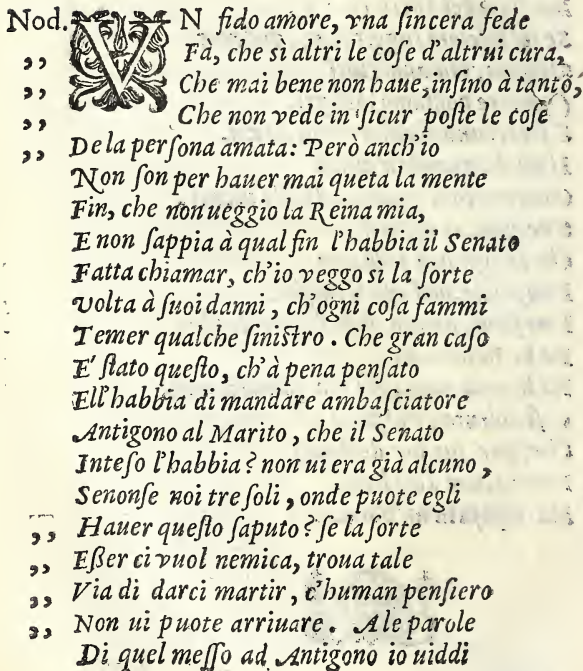 Nod. VN fido amore, vna ſincera fede
,, Fà, che sì altri le coſe d'altrui cura,
,, Che mai bene non haue, inſino à tantõ,
,, Che non vede in ſicur poſte le coſe
,, De la perſona amata: Però anch'io
Non ſon per hauer mai queta la mente
Fin, che non ueggio la Reina mia,
E non ſappia à qual fin l'habbia il Senato
Fatta chiamar, ch'io veggo sì la ſorte
volta à ſuoi danni, ch'ogni coſa fammi
Temer qualche ſiniſtro. Che gran caſo
E' ſtato queſto, ch'à pena penſato
Ell'habbia di mandare ambaſciatore
Antigono al Marito, che il Senato
Inteſo l'habbia? non ui era già alcuno,
Senonſe noi tre ſoli, onde puote egli
,, Hauer queſto ſaputo? ſe la ſorte
,, Eſſer ci vuol nemica, troua tale
,, Via di darci martir, c'human penſiero
,, Non ui puote arriuare. A le parole
Di quel meſſo ad Antigono io uiddi